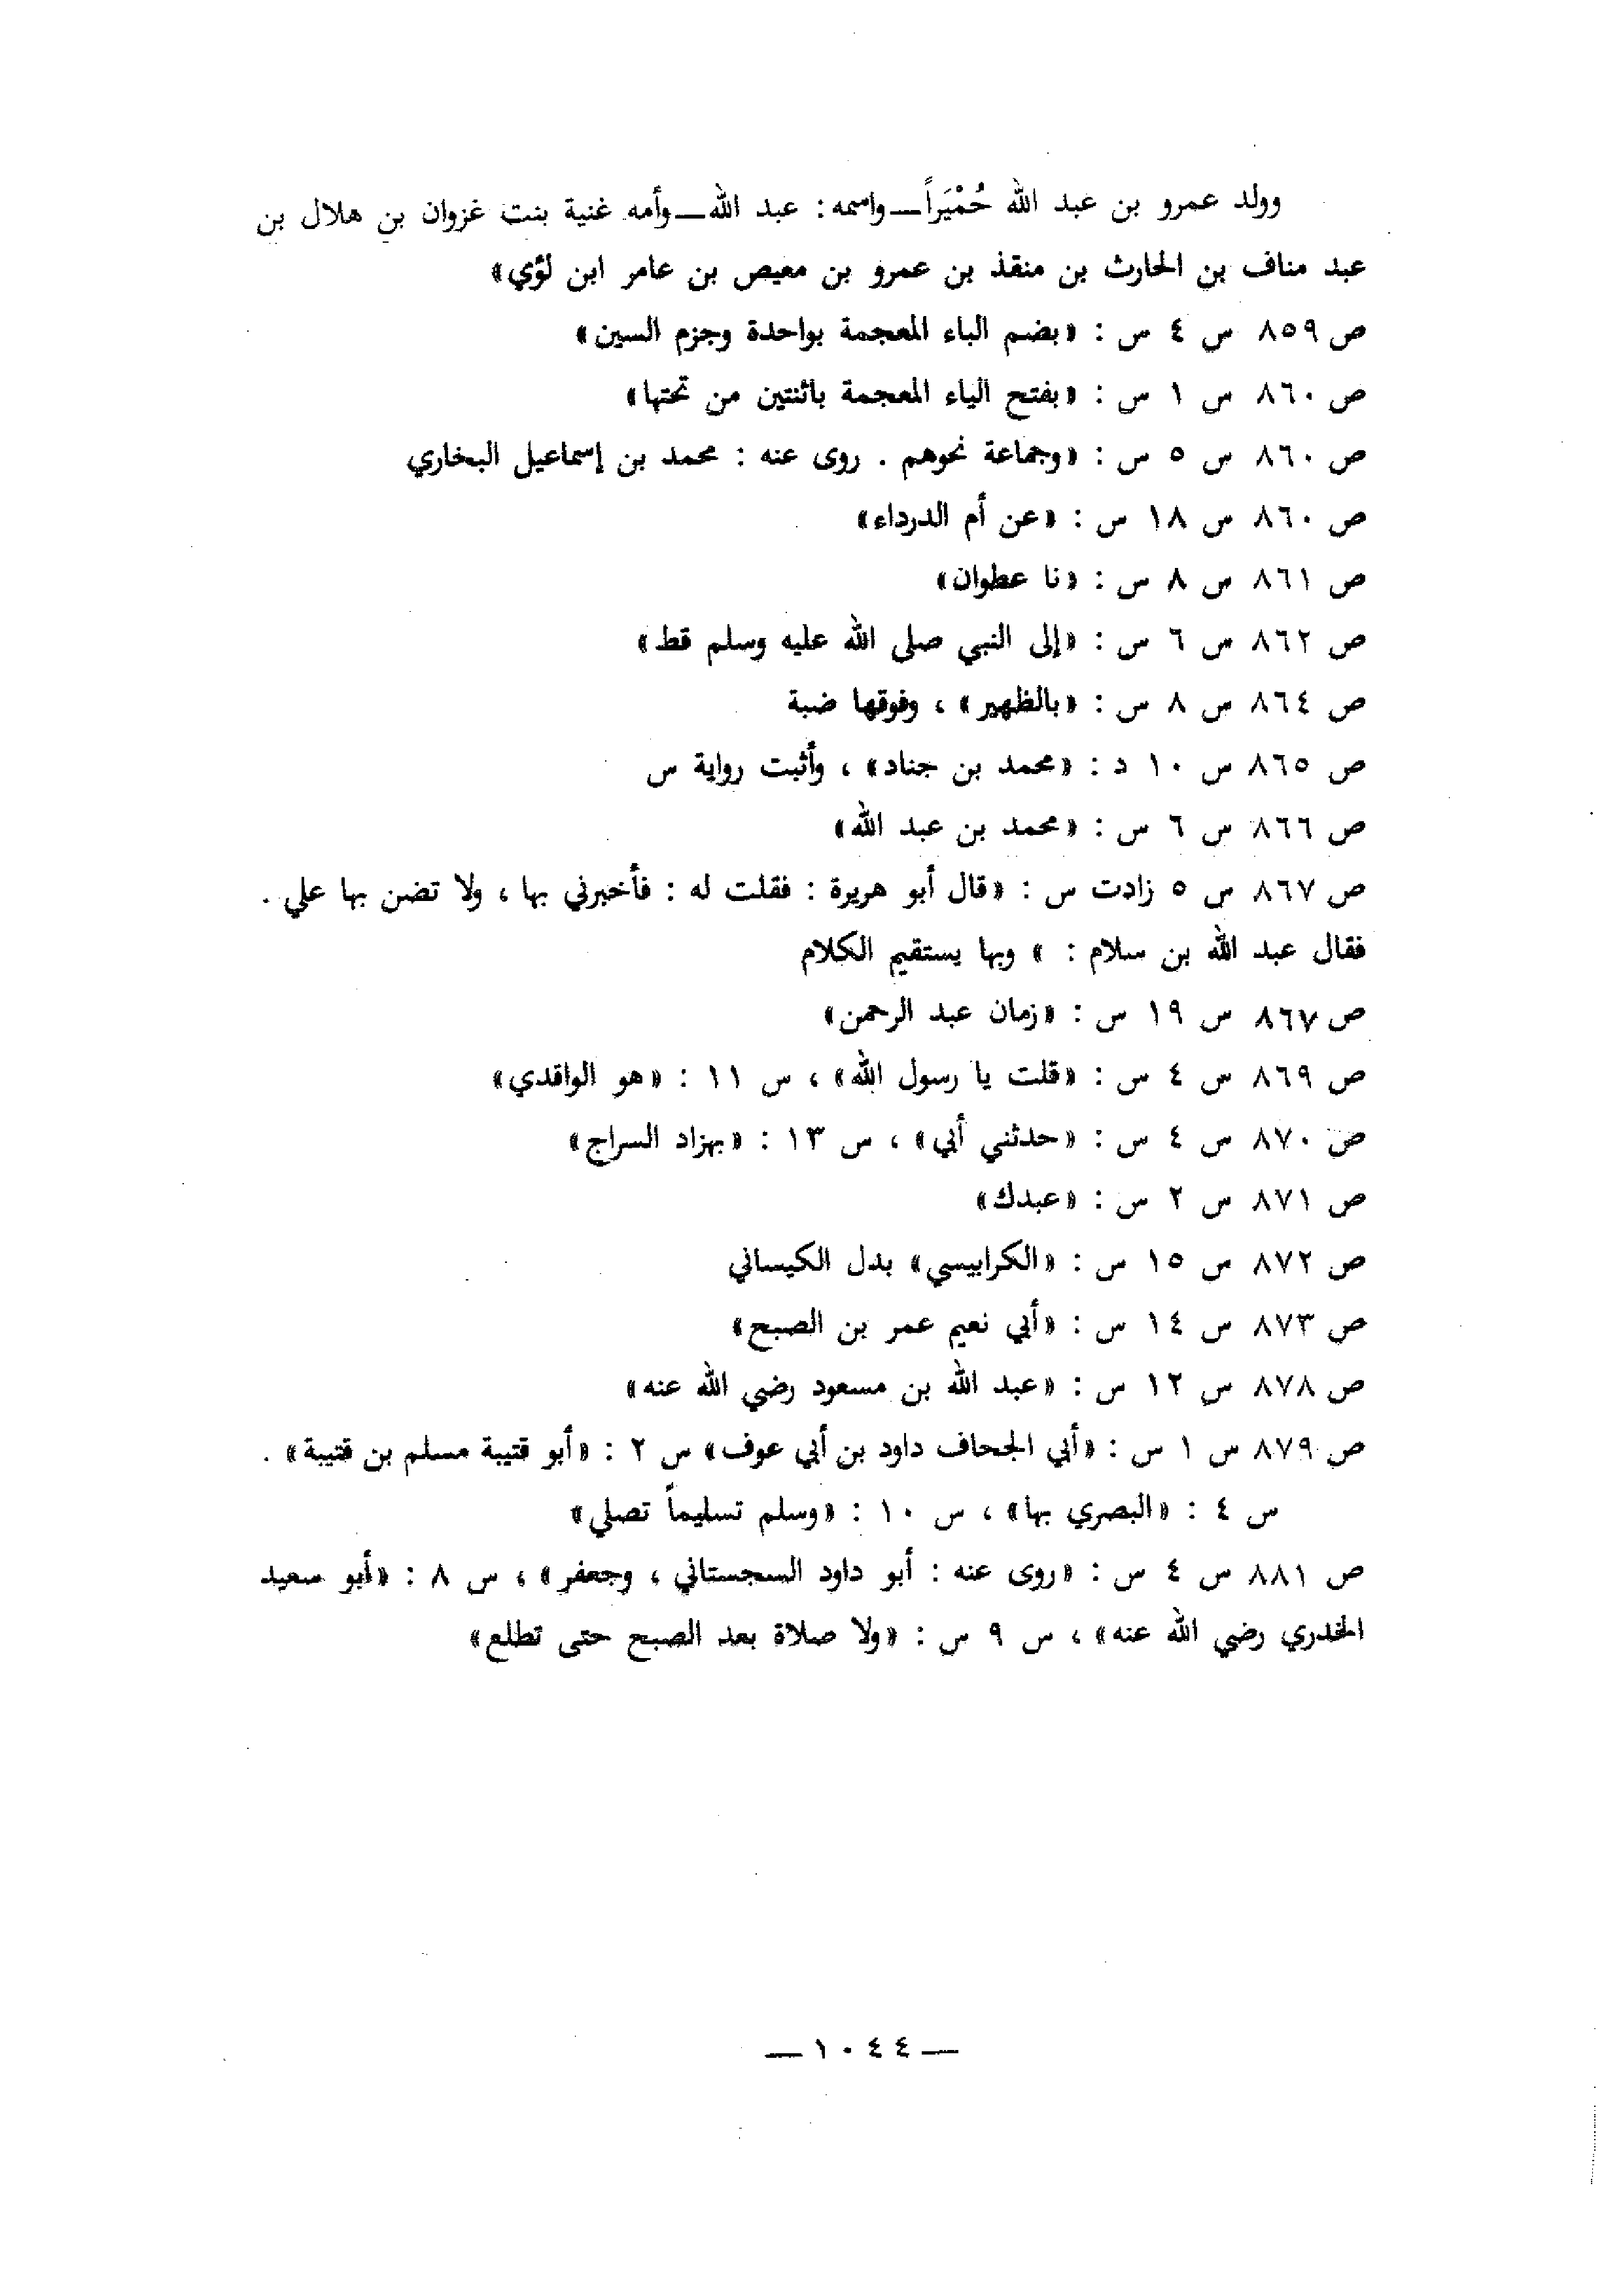 وولد عمرو بن عبد الله حُمْيَراً ــ واسمه : عبد الله ــ وأمه غنية بنت غزوان بن هلال بن
عبد مناف بن الحارث بن منقذ بن عمرو بن معيص بن عامر ابن لؤي»
ص ٨٥٩ س ٤ س : «بضم الباء المعجمة بواحدة وجزم السين»
ص ٨٦٠ س ١ س : «بفتح الياء المعجمة باثنتين من تحتها»
ص ٨٦٠ س ٥ س : «وجماعة نحوهم . روى عنه : محمد بن إسماعيل البخاري
ص ٨٦٠ س ١٨ س : «عن أم الدرداء»
ص ٨٦١ س ٨ س : «نا عطوان»
ص ٨٦٢ س ٦ س : «إلى النبي صلى الله عليه وسلم قط»
ص ٨٦٤ س ٨ س : «بالظهير» ، وفوقها ضبة
ص ٨٦٥ س ١٠ د : «محمد بن جناد» ، وأثبت رواية س
ص ٨٦٦ س ٦ س : «محمد بن عبد الله»
ص ٨٦٧ س ٥ زادت س : «قال أبو هريرة : فقلت له : فأخبرني بها ، ولا تضن بها علي .
فقال عبد الله بن سلام : » وبها يستقيم الكلام
ص ٨٦٧ س ١٩ س : «زمان عبد الرحمن»
ص ٨٦٩ س ٤ س : «قلت يا رسول الله» ، س ١١ : «هو الواقدي»
ص ٨٧٠ س ٤ س : «حدثني أبي» ، س ١٣ : «بهزاد السراج»
ص ٨٧١ س ٢ س : «عبدك»
ص ٨٧٢ س ١٥ س : «الكرابيسي» بدل الكيساني
ص ٨٧٣ س ١٤ س : «أبي نعيم عمر بن الصبح»
ص ٨٧٨ س ١٢ س : «عبد الله بن مسعود رضي الله عنه»
ص ٨٧٩ س ١ س : «أبي الجحاف داود بن أبي عوف» س ٢ : «أبو قتيبة مسلم بن قتيبة» .
س ٤ : «البصري بها» ، س ١٠ : «وسلم تسليماً تصلي»
ص ٨٨١ س ٤ س : «روى عنه : أبو داود السجستاني ، وجعفر» ، س ٨ : «أبو سعيد
الخدري رضي الله عنه» ، س ٩ س : «ولا صلاة بعد الصبح حتى تطلع»
— ١٠٤٤ —